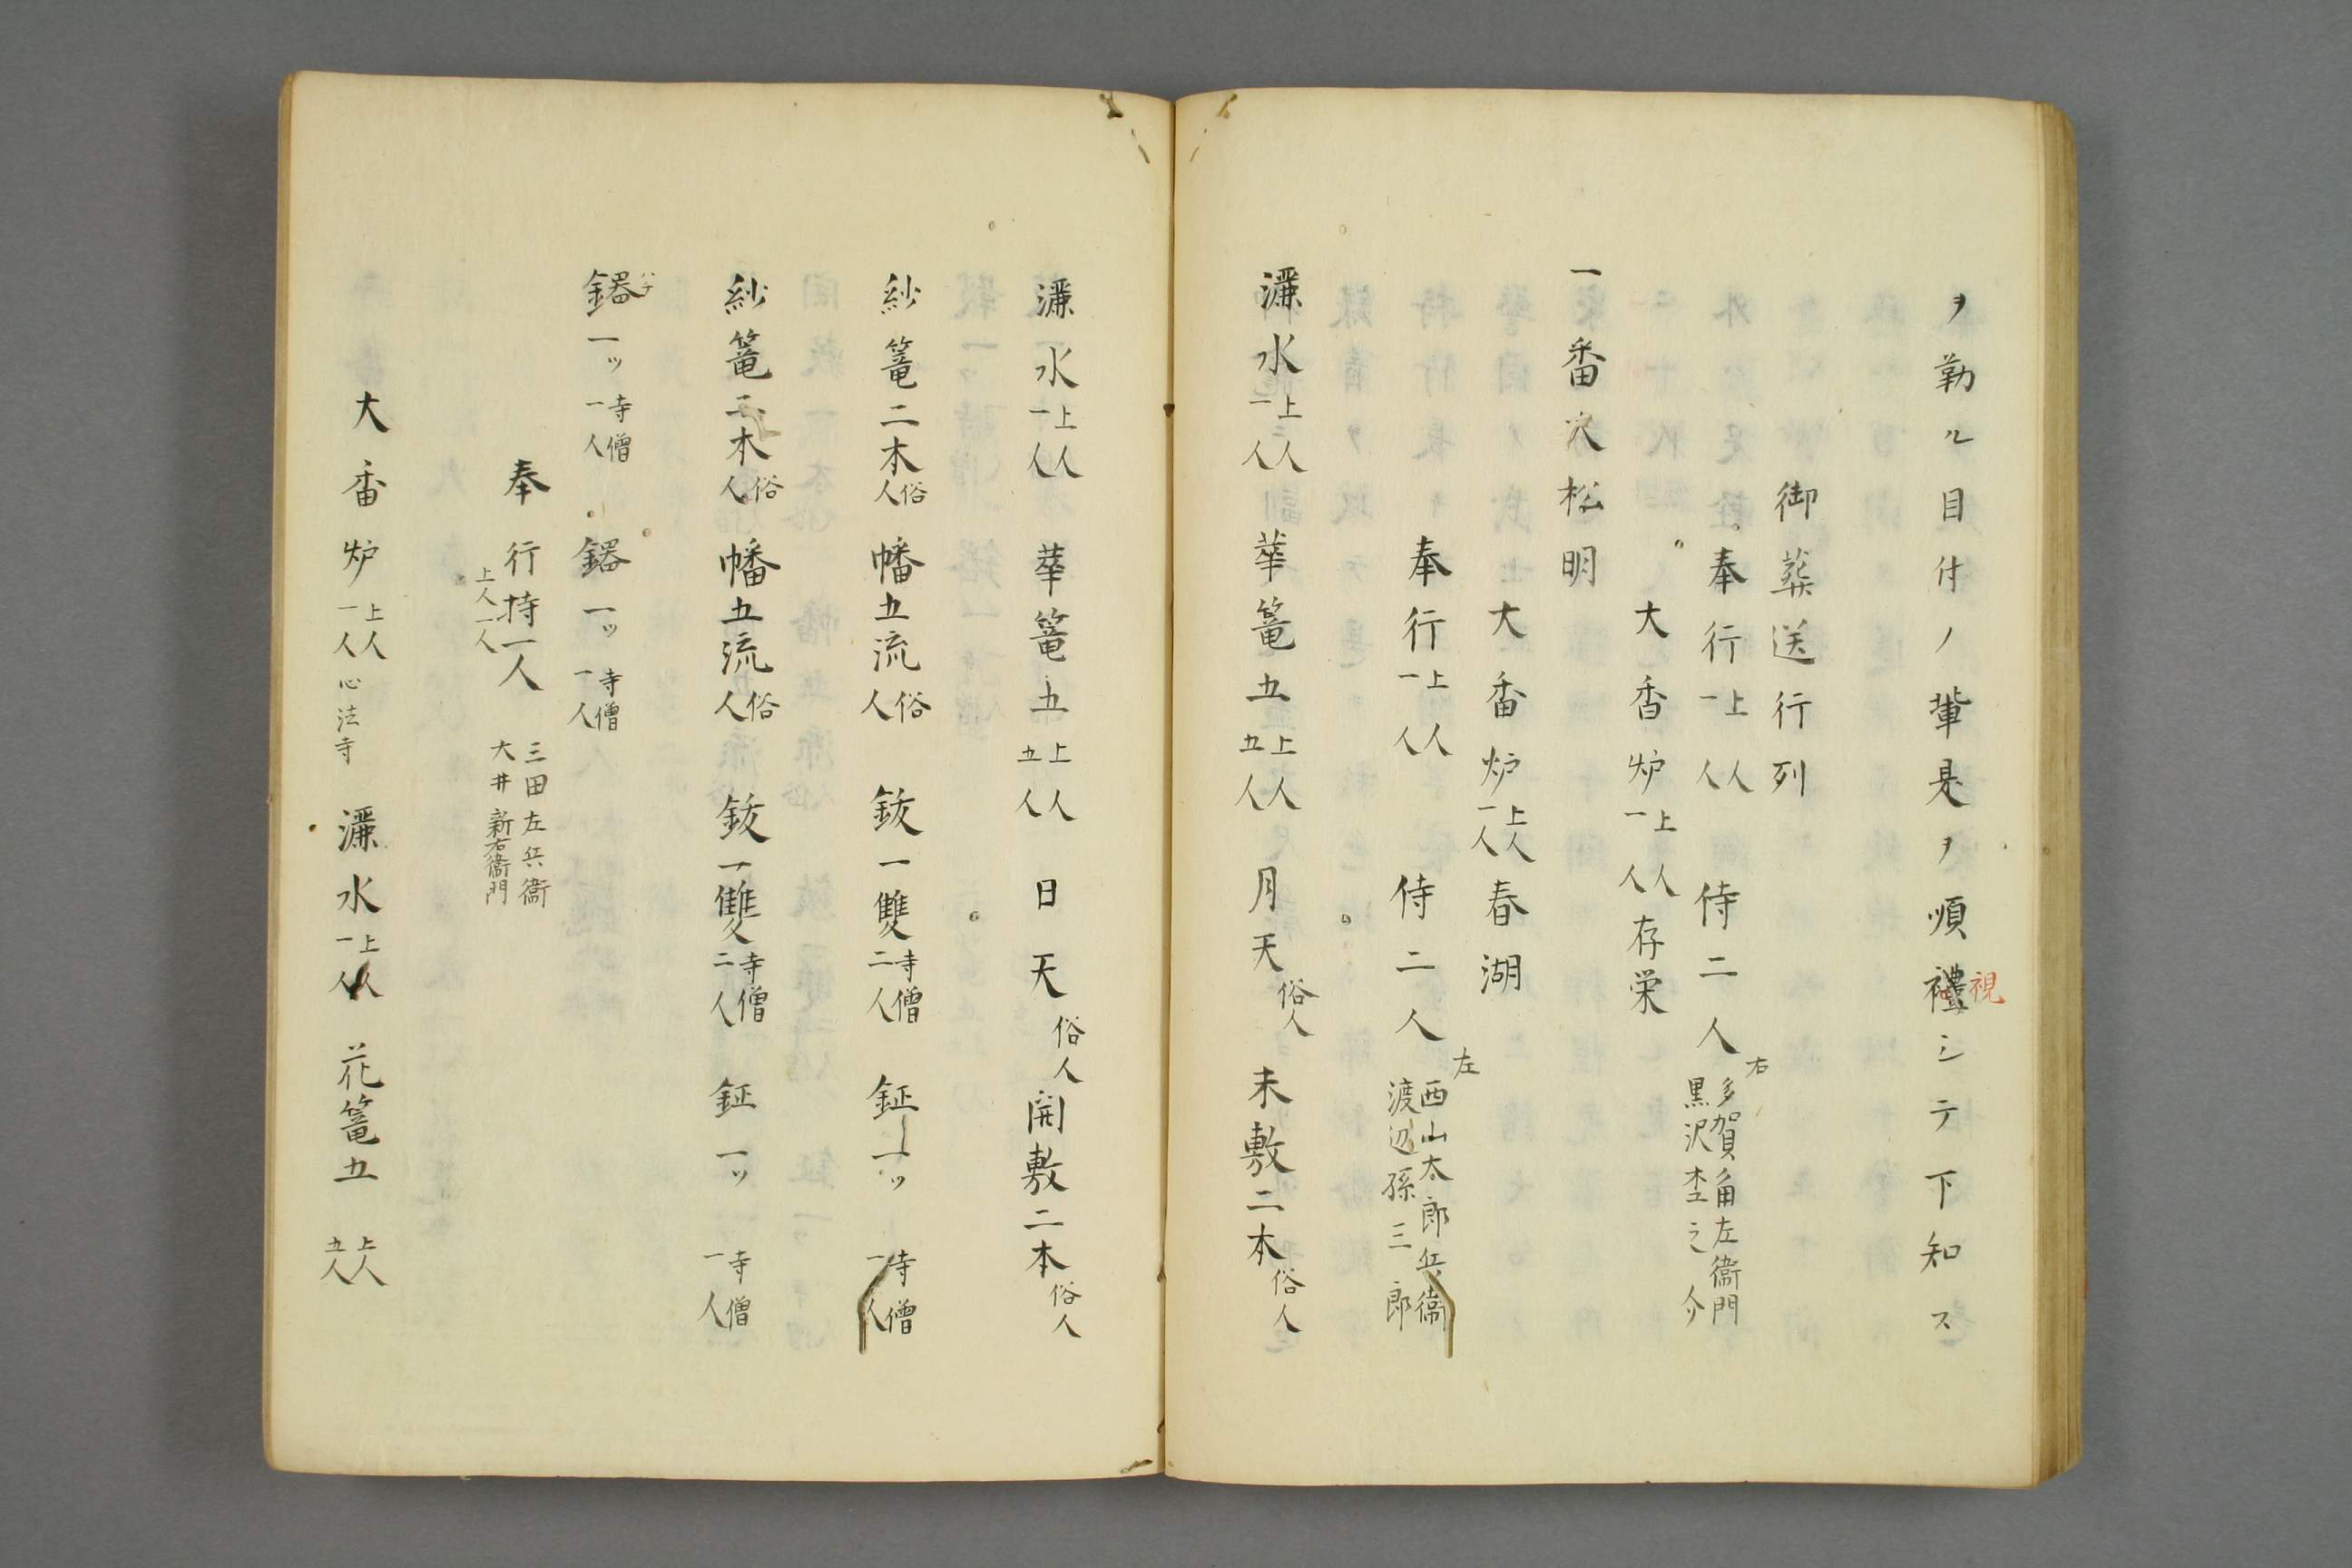 ヲ勤ル目付ノ輩是ヲ順禮シテ下知ス
視
御葬送行列
奉行上人一人 侍二人 右 多賀角左衛門 黒沢杢之介
大香炉上人一人存栄
一番火松明
大香炉上人一人春湖
奉行上人一人 侍二人 左 西山太郎兵衛 渡辺孫三郎
灑水上人一人 華篭五上人五人 月天俗人 未敷二本俗人
灑水上人一人 華篭五上人五人 日天俗人 開敷二本俗人
紗篭二本俗人 幡五流俗人 鈸一雙寺僧二人 鉦一ッ寺僧一人
紗篭二本俗人 幡五流俗人 鈸一雙寺僧二人 鉦一ッ寺僧一人
一ッ寺僧一人 一ッ寺僧一人
奉行持一人 上人一人 三田左兵衛 大井新右衛門
大香炉上人一人心法寺 灑水上人一人 花篭五上人五人